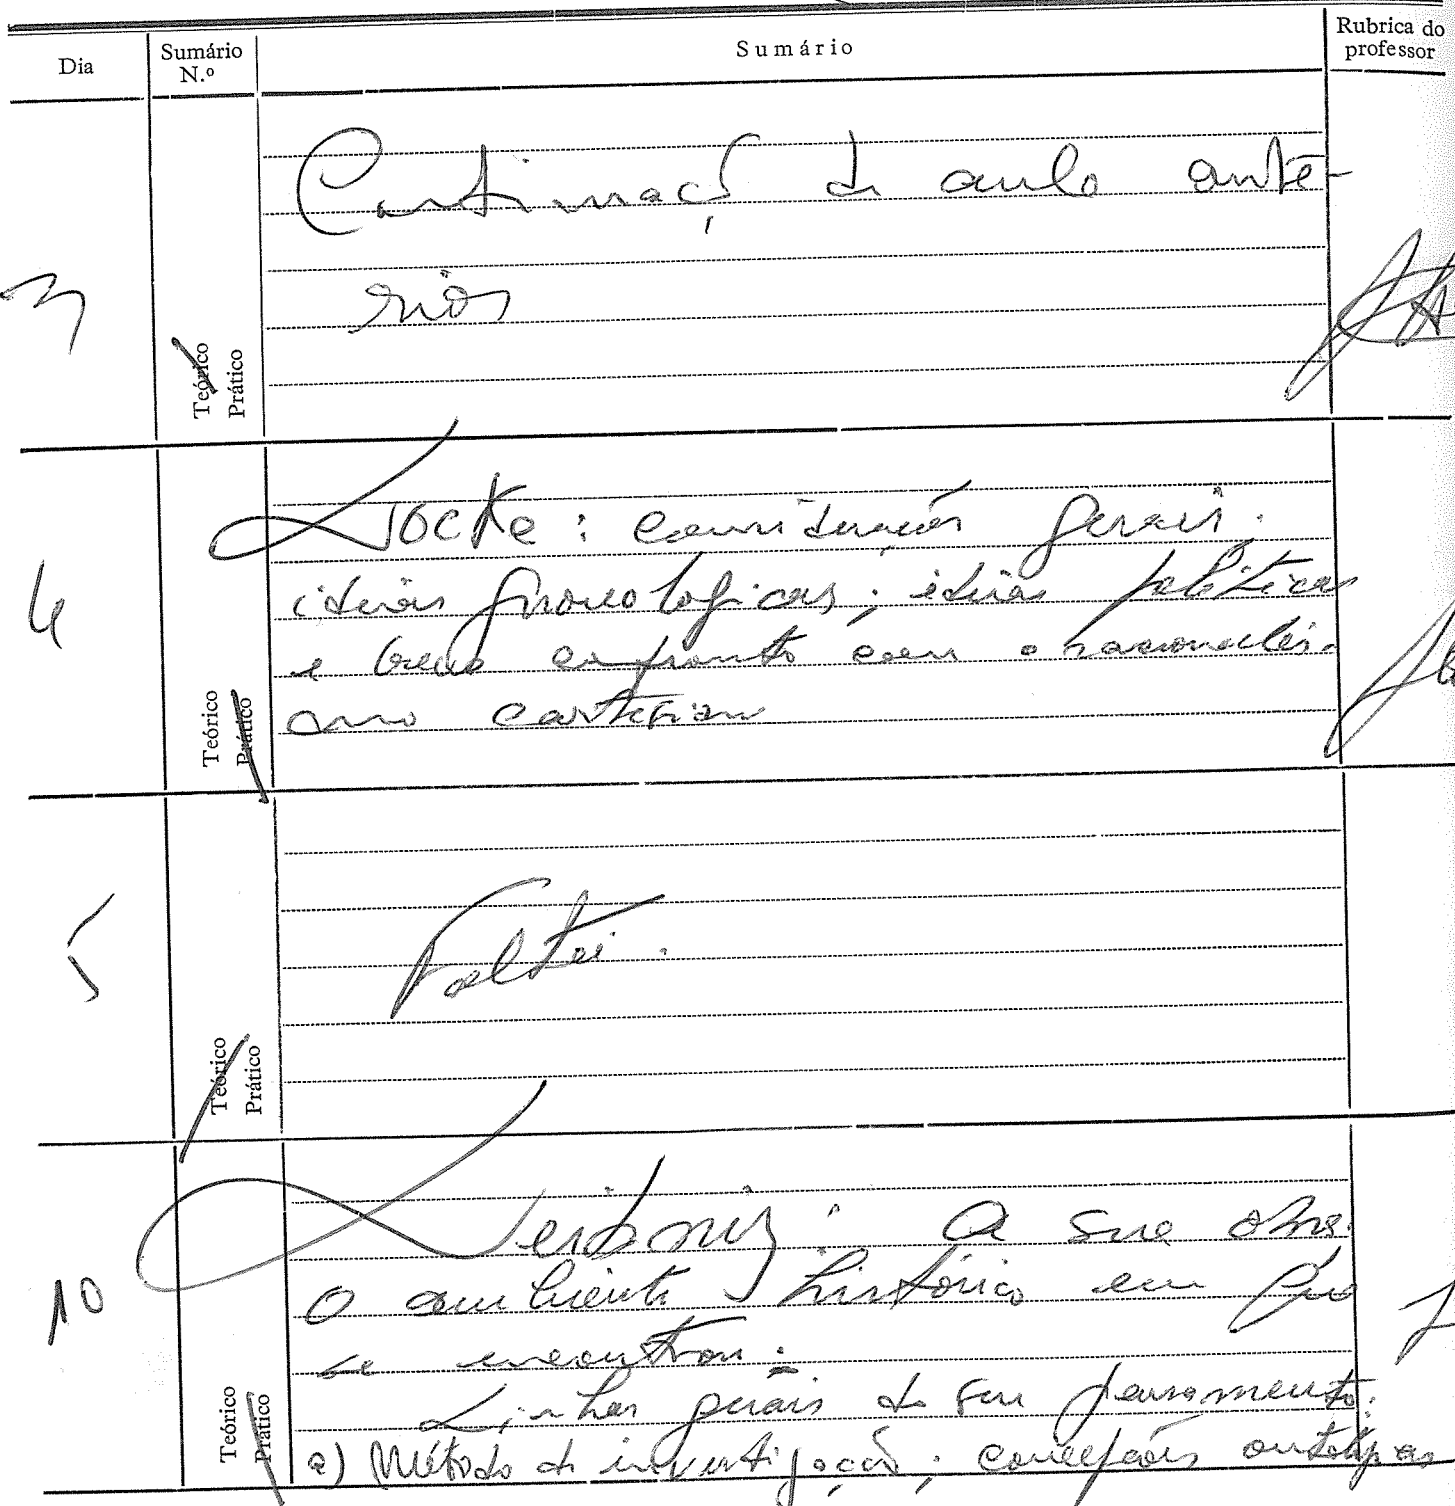 Dia Sumário N.º Sumário Rubrica do professor
3
Continuação da aula ante-
rior
Teórico
Prático
4
Locke: considerações gerais.
ideias gnoseologicas; ideias politicas
e breve confronto com o racionalis-
mo cartesiano
Teórico
Prático
5
Faltei.
Teórico
Prático
10
Leibniz: A sua obra.
O ambiente histórico em que
se encontrou.
Linhas gerais do seu pensamento:
a) Método de investigação; concepções ontológicas
Teórico
Prático